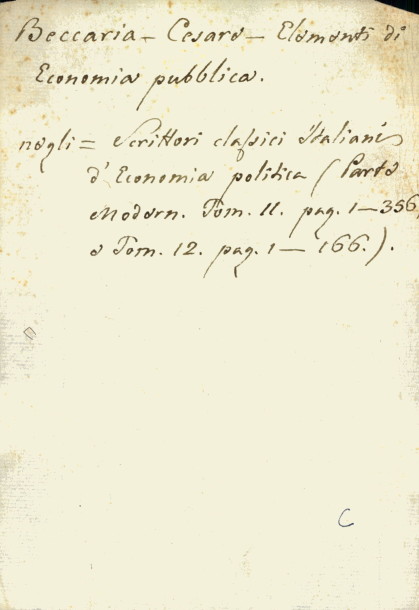 Beccaria - Cesare - Elementi di
Economia pubblica.
negli = Scrittori classici Italiani
d'Economia politica (Parte
Modern. Tom. 11. pag. 1-356,
e Tom. 12. pag. 1-166.).
C